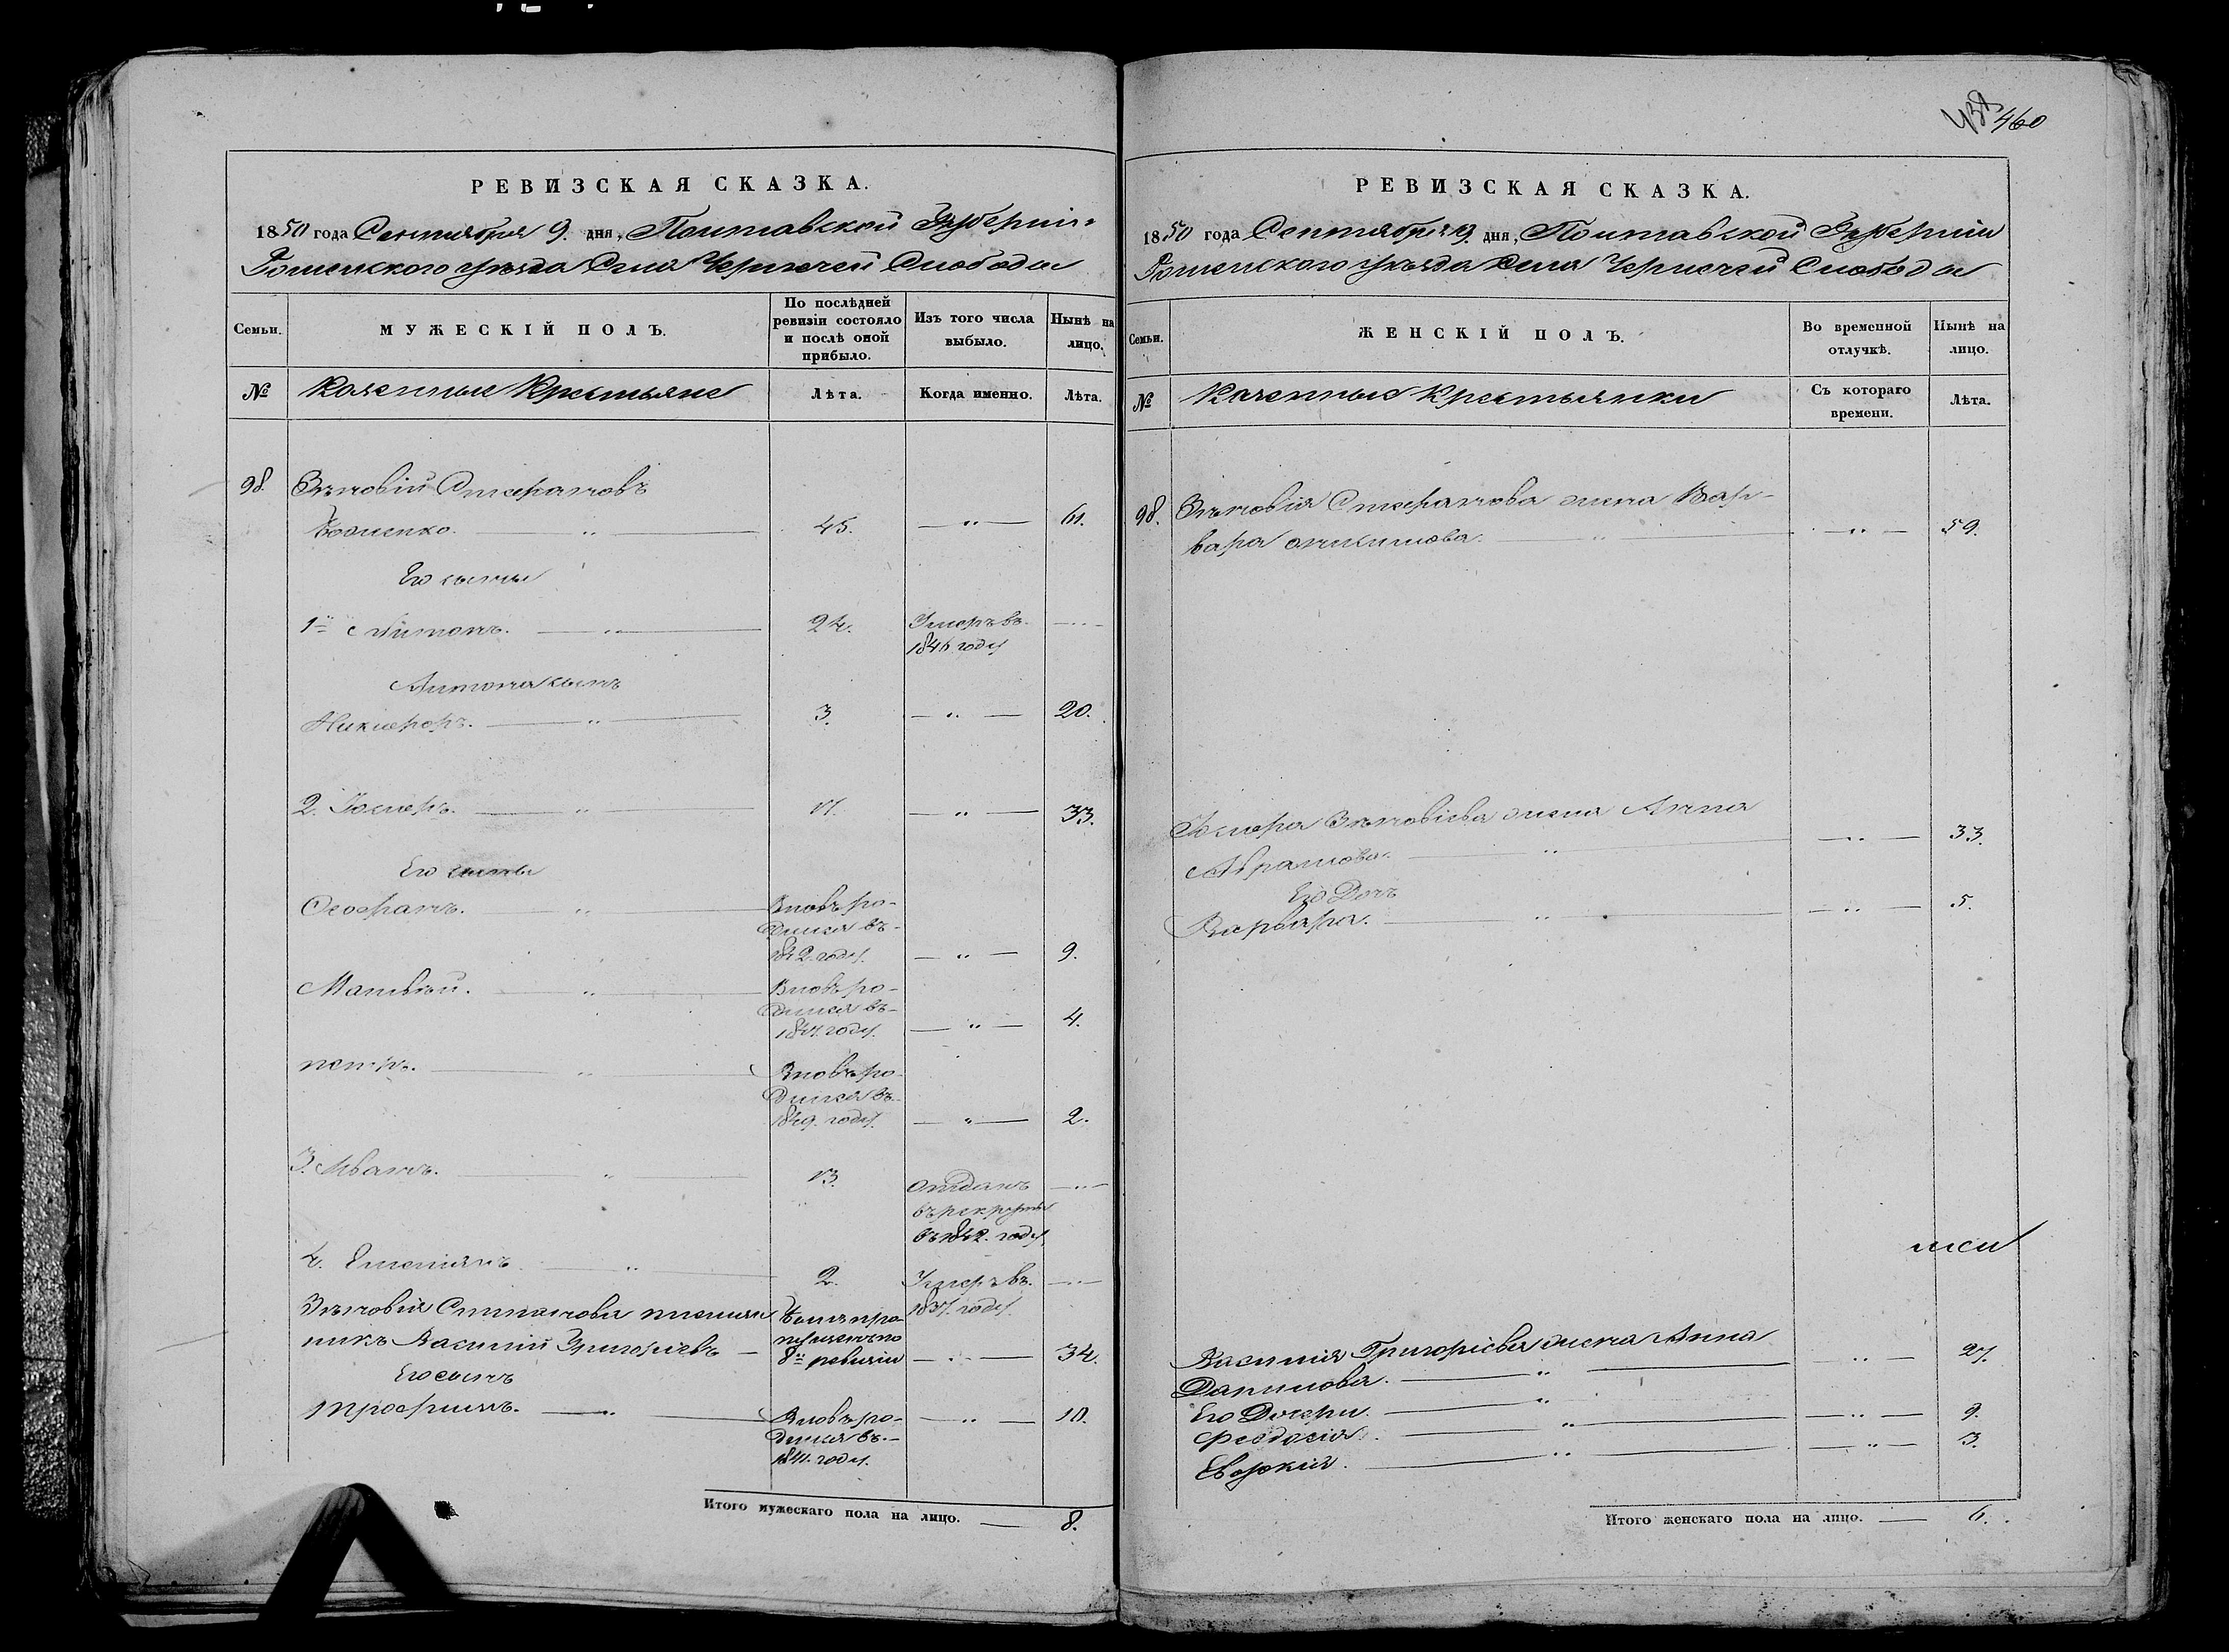 460
РЕВИЗСКАЯ СКАЗКА.
1850 года Сентября 9. дня, Полтавской Губерніи
Роменского уѣзда Села Чернечей Слободы
Семьи.
МУЖЕСКІЙ ПОЛЪ.
По послѣдней ревизіи состояло и послѣ оной прибыло.
Изъ того числа выбыло.
Нынѣ на лицо.
№
Казенные Крестьяне
Лѣта.
Когда именно.
Лѣта.
98. Зѣновій Стефановъ
45. — „ — 61.
Его сыны
1й Антонъ. — „ — 24. Умеръ въ —„—
1846 году
Антона сынъ
Никифоръ. — „ — 3. — „ — 20.
2. — „ — 17. — „ — 33.
Его сыны
— „ — Вновь ро-
дился въ
1842 году. — „ — 9.
Матвѣй. — „ — Вновь ро-
дился въ
1847 году. — „ — 4.
петръ. — „ — Вновь ро-
дился въ
1849. году. — „ — 2.
3. Иванъ. — „ — 13. отданъ —„—
въ рекруты
въ 1842. году
4. Емеліянъ — „ — 2. Умеръ въ —„—
1837. году
Зѣновія Стефанова племян
никъ Василий Григорьевъ —
8й ревизіи — „ — 34.
Его сынъ
Трофимъ. — „ — Вновь ро- — „ — 10.
дился въ
1841. году.
Итого мужескаго пола на лицо. — 8.
РЕВИЗСКАЯ СКАЗКА.
1850 года Сентября 9. дня, Полтавской Губерніи
Роменского уѣзда Села Чернечей Слободы
Семьи.
ЖЕНСКІЙ ПОЛЪ.
Во временной отлучкѣ.
Нынѣ на лицо.
№
Казенные Крестьянки
Съ котораго времени.
Лѣта.
98. Зѣновія Стефанова жена Вар-
вара — „ — 59.
Зѣновіева жена Анна
Абрамова. — „ — 33.
Его Дочь
Варвара. — „ — 5.
Василія Григоріева жена Анна
Данилова. — „ — 27.
Его Дочери. — „
Феодосія. — „ — 9.
Евдокия. — „ — 3.
Итого женскаго пола на лицо. — 6.